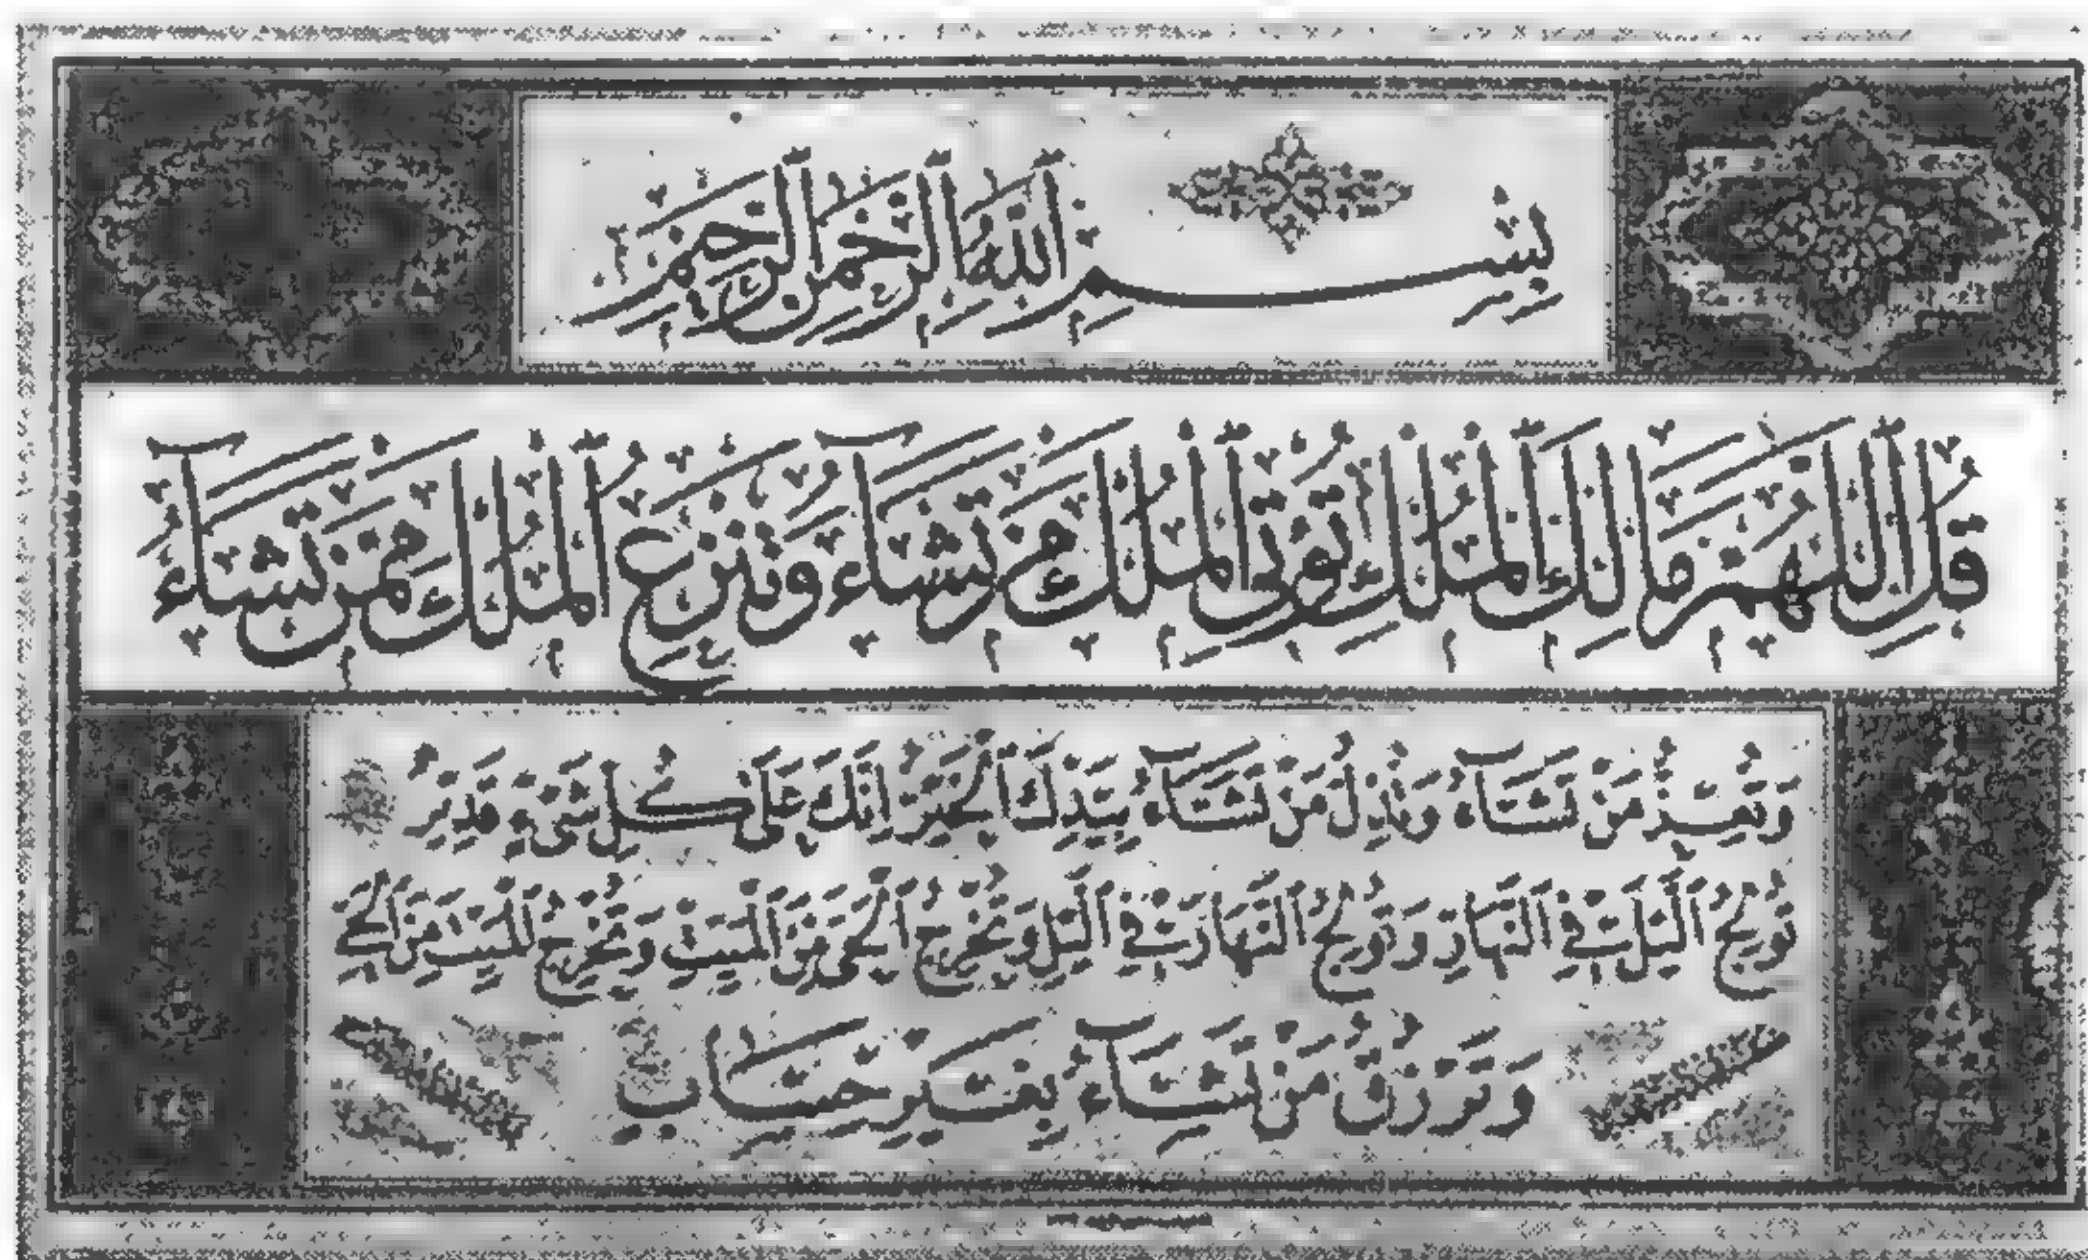 بِسْمِ اللَّهِ الرَّحْمَٰنِ الرَّحِيمِ
قُلِ اللَّهُمَّ مَالِكَ الْمُلْكِ تُؤْتِي الْمُلْكَ مَنْ تَشَاءُ وَتَنْزِعُ الْمُلْكَ مِمَّنْ تَشَاءُ
وَتُعِزُّ مَنْ تَشَاءُ وَتُذِلُّ مَنْ تَشَاءُ بِيَدِكَ الْخَيْرُ إِنَّكَ عَلَىٰ كُلِّ شَيْءٍ قَدِيرٌ
تُولِجُ اللَّيْلَ فِي النَّهَارِ وَتُولِجُ النَّهَارَ فِي اللَّيْلِ وَتُخْرِجُ الْحَيَّ مِنَ الْمَيِّتِ وَتُخْرِجُ الْمَيِّتَ مِنَ الْحَيِّ
وَتَرْزُقُ مَنْ تَشَاءُ بِغَيْرِ حِسَابٍ